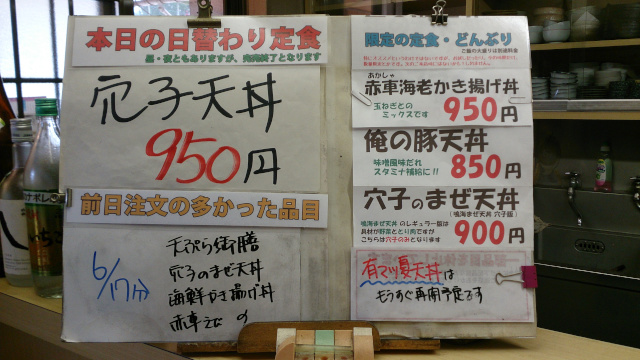 本日の日替わり定食
昼・夜ともありますが、完売終了となります
穴子天丼
950円
前日注文の多かった品目
6/17分
天ぷら御膳
穴子のまぜ天丼
海鮮かき揚げ丼
赤車えびの
限定の定食・どんぶり
ご飯の大盛りは別途料金
あかしゃ
赤車海老かき揚げ丼
玉ねぎとの
ミックスです
950円
俺の豚天丼
味噌風味だれ
スタミナ補給に!!
850円
穴子のまぜ天丼
(鳴海まぜ天丼 穴子版)
鳴海まぜ天丼 のレギュラー版は
具材が野菜ととり肉ですが
こちらは穴子のみとなります
900円
有マツ夏天丼は
もうすぐ再開予定です